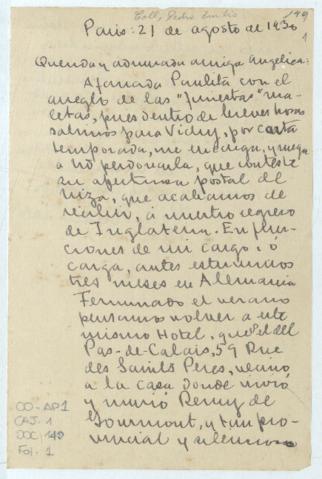 Coll, Pedro Emilio
149
1
Paris: 21 de agosto de 1930
Querida y admirada amiga Angelica:
Afanada Paulita con el
arreglo de las "funestas" ma-
letas, pues dentro de breves horas
salimos para Vichy, por corta
temporada, me encarga, y ruega
a Ud perdonarla, que conteste
su afectuosa postal de
Niza, que acabamos de
recibir, á nuestro regreso
de Inglaterra. En fun-
ciones de mi cargo, ó
carga, antes estuvimos
tres meses en Alemania
Terminado el verano
pensamos volver a este
mismo Hotel, que es el del
Pas-de-Calais, 59 Rue
des Saints Peres, vecino
a la casa donde vivió
y murió Remy de
Gourmont, y tan pro-
vincial y silencioso
CO-AP1
CAJ. 1
DOC. 149
Fol. 1